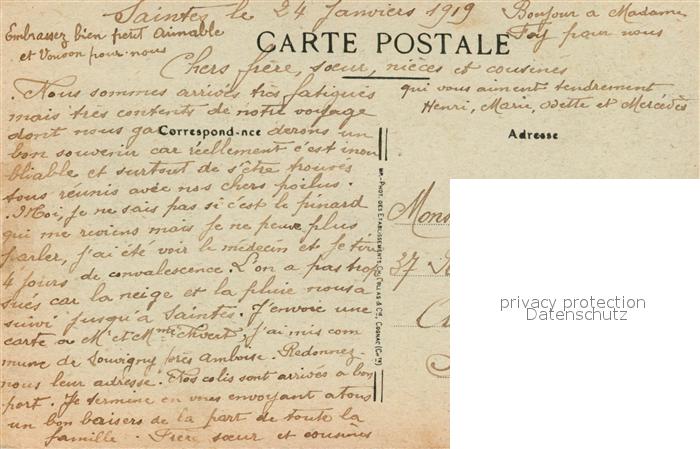 Saintes le 24 Janviers 1919
Embrassez bien petit Aimable
et Vonson pour nous
Bonjour a Madame
Foy pour nous
CARTE POSTALE
Chers frère, sœur, nièces et cousines
Nous sommes arrivés très fatigués
mais très contents de notre voyage
dont nous ga derons un
Correspond·nce
bon souvenir car réellement c'est inou
bliable et surtout de s'être trouvés
tous réunis avec nos chers poilus.
Moi, je ne sais pas si c'est le pinard
qui me reviens mais je ne peux plus
parler, j'ai été voir le médecin et je
4 jours de convalescence. L'on a pas trop
sués car la neige et la pluie nous a
suivi jusqu'à Saintes. J'envoie une
carte a Mr et Mme j'ai mis com
mune de Souvigny près Amboise. Redonnez-
nous leur adresse. Nos colis sont arrivés a bon
port. Je termine en vous envoyant a tous
un bon baisers de la part de toute la
famille. Frère sœur et cousines
qui vous aiment tendrement
Henri, Marie, Odette et Mercédès
Adresse
IMP.-PHOT. DES ETABLISSEMENTS CH. COLLAS & Cie, COGNAC (Cte)
Mons
37
privacy protection
Datenschutz